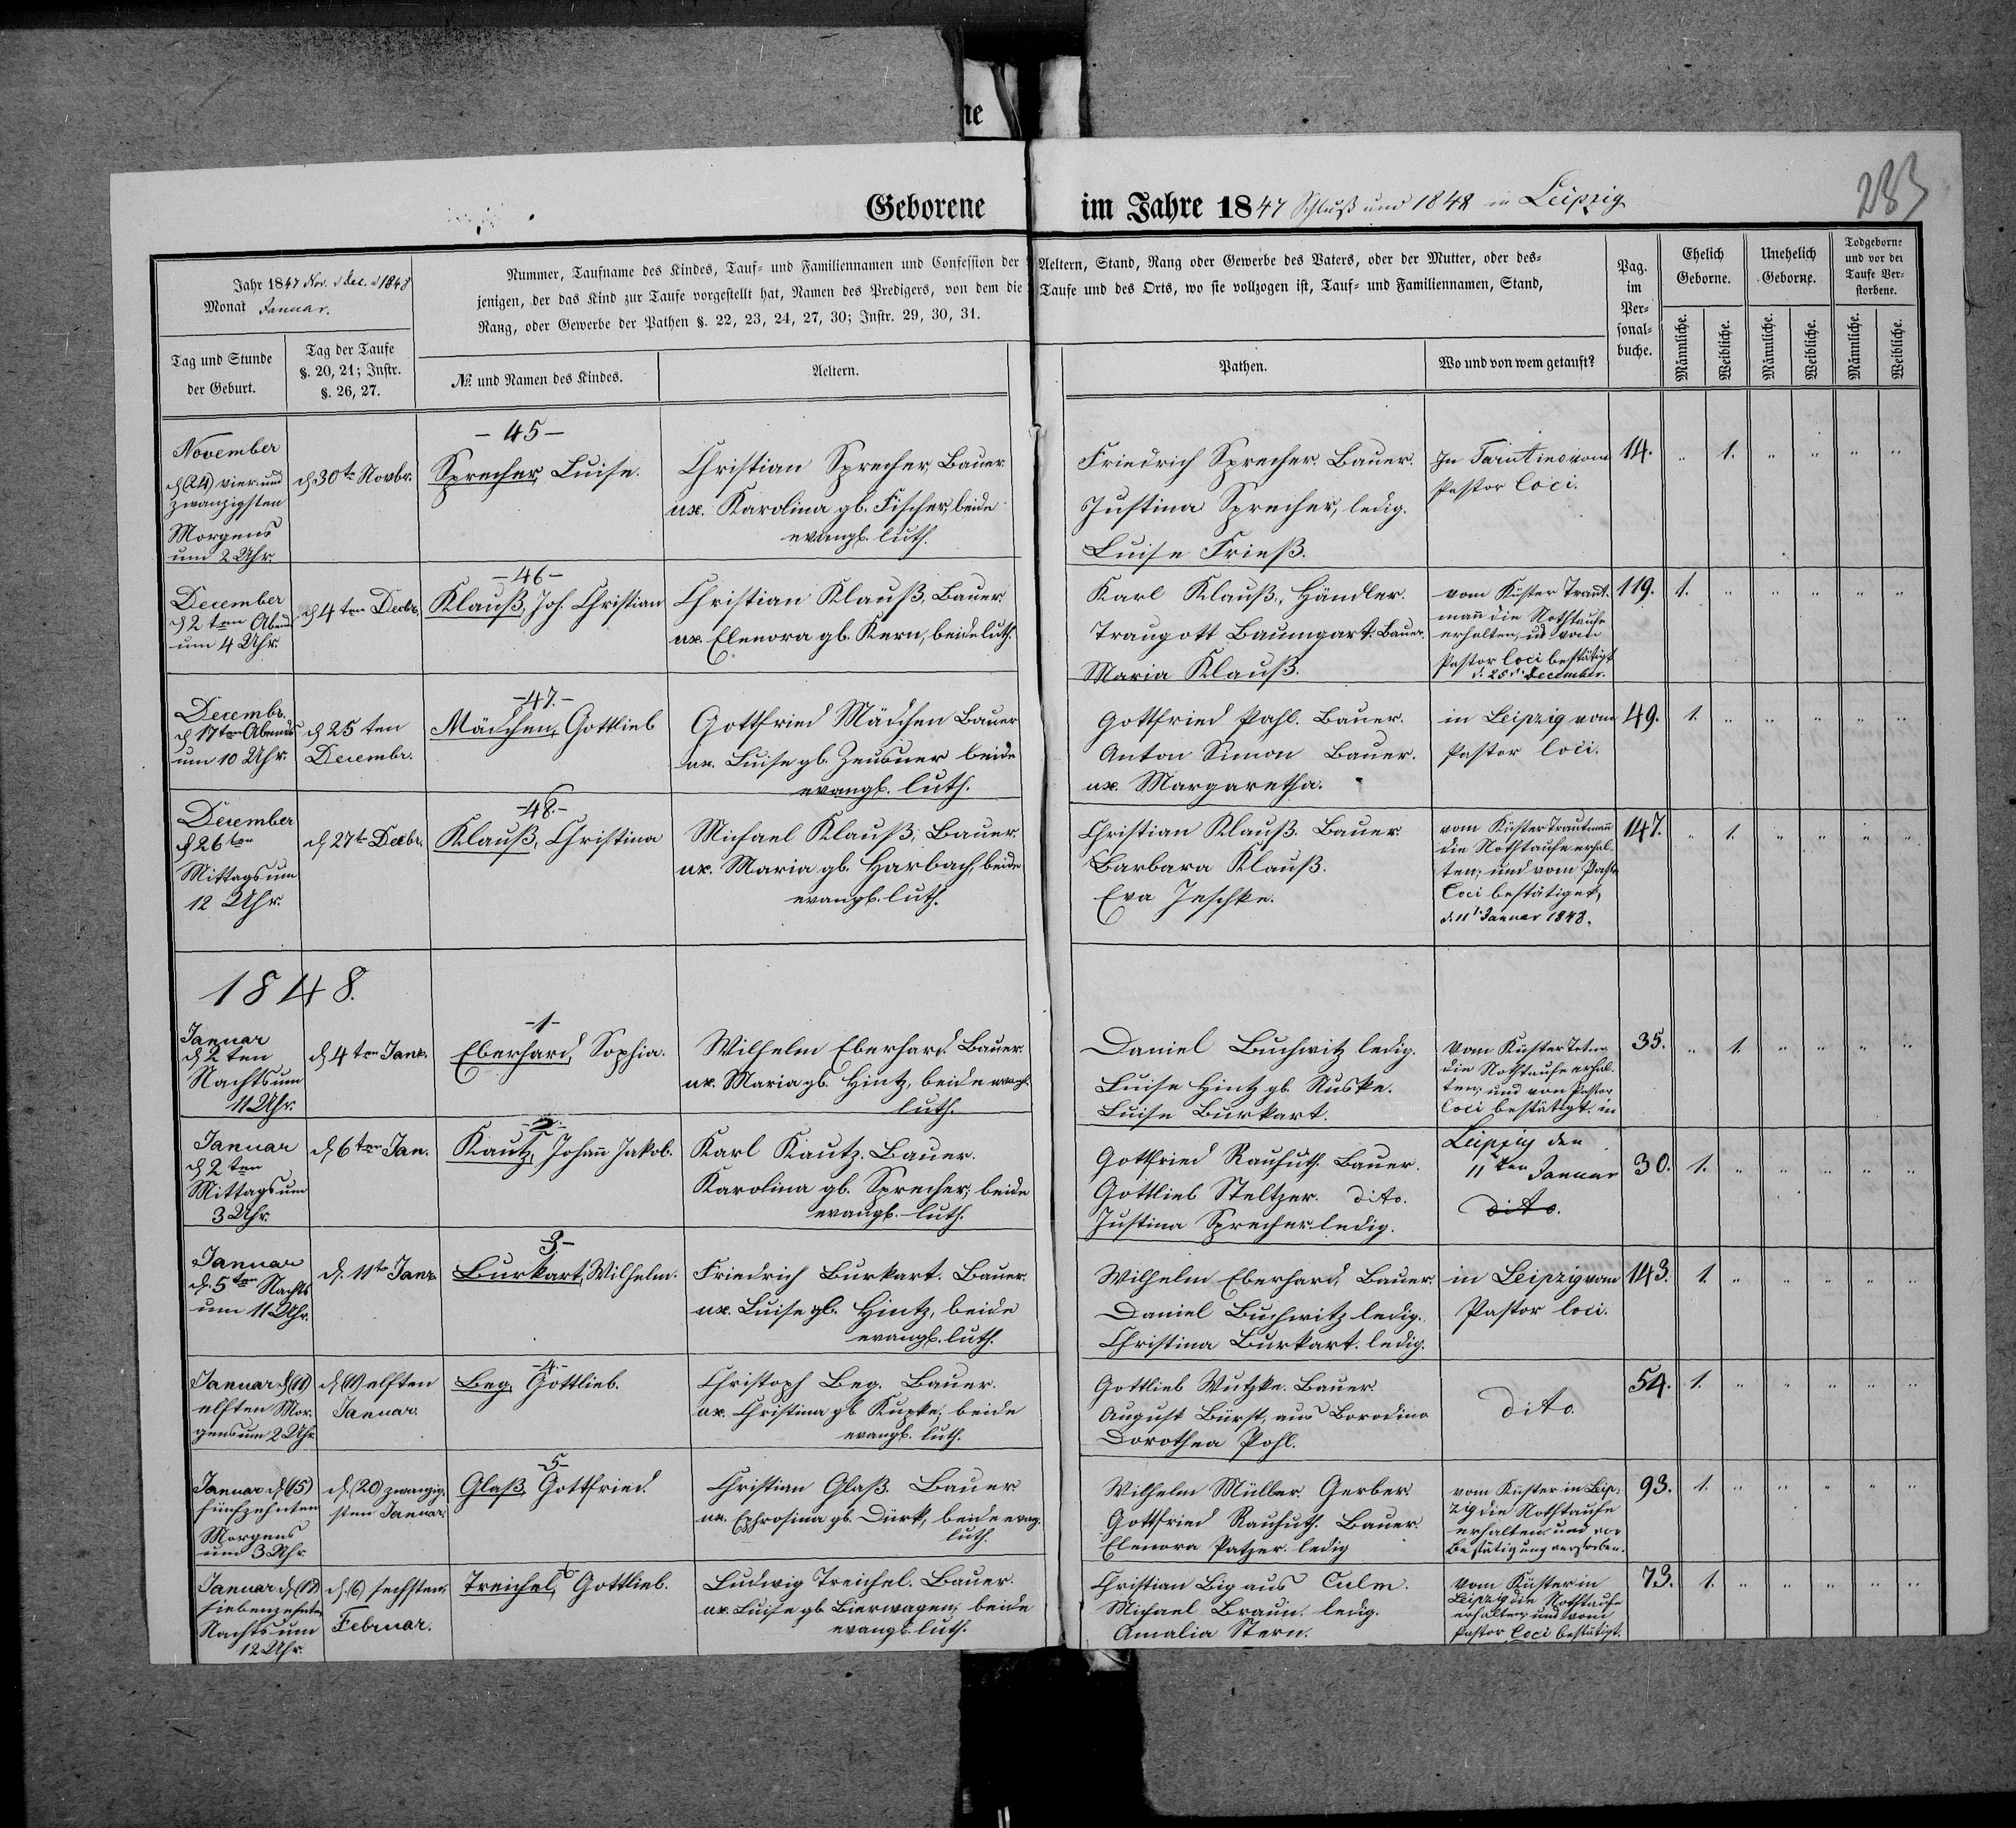 ne
283
Geborene im Jahre 1847 Schluß und 1848 in Leipzig
Jahr 1847 Nov. u Dec. u 1848
Monat Januar.
Nummer, Taufname des Kindes, Tauf- und Familiennamen und Confession der Aeltern, Stand, Rang oder Gewerbe des Vaters, oder der Mutter, oder des-
jenigen, der das Kind zur Taufe vorgestellt hat, Namen des Predigers, von dem die Taufe und des Orts, wo sie vollzogen ist, Tauf- und Familiennamen, Stand,
Rang, oder Gewerbe der Pathen §. 22, 23, 24, 27, 30; Instr. 29, 30, 31.
Tag und Stunde
der Geburt.
Tag der Taufe
§. 20, 21; Instr.
§. 26, 27.
№ und Namen des Kindes.
Aeltern.
Pathen.
Wo und von wem getauft?
Pag.
im
Per-
sonal-
buche.
Ehelich
Geborne.
Unehelich
Geborne.
Todgeborne
und vor der
Taufe Ver-
storbene.
Männliche.
Weibliche.
Männliche.
Weibliche.
Männliche.
Weibliche.
November
d (24) vier und
zwanzigsten
Morgens
um 2 Uhr.
d 30ten Novbr.
- 45 -
Sprecher, Luise.
Christian Sprecher, Bauer
ux. Karolina gb. Fischer, beide
evangl. luth.
Friedrich Sprecher. Bauer.
Justina Sprecher, ledig.
Luise Frieß.
In Tarutino vom
Pastor loci.
14. " 1. " " " "
December
d 2ten Abend
um 4 Uhr.
d 4ten Decbr.
- 46 -
Klauß, Joh. Christian
Christian Klauß, Bauer.
ux. Elenora gb. Kern, beide luth.
Karl Klauß, Händler.
Traugott Baumgart. Bauer.
Maria Klauß.
vom Küster Traut-
mañ die Nothtaufe
erhalten, u vom
Pastor loci bestätigt
d. 25t. December.
119. 1. " " " " "
Decembr.
d 17ten Abends
um 10 Uhr.
d 25ten
Decembr.
- 47. -
Mädchen, Gottlieb
Gottfried Mädchen Bauer
ux. Luise gb. Zeusner beide
evangl. luth.
Gottfried Pahl. Bauer.
Anton Simon Bauer.
ux. Margaretha.
in Leipzig vom
Pastor loci.
49. 1. " " " " "
December
d 26ten
Mittags um
12 Uhr.
d 27ten Decbr.
- 48. -
Klauß, Christina
Michael Klauß, Bauer
ux. Maria gb. Harbach, beide
evangl. luth.
Christian Klauß. Bauer
Barbara Klauß.
Eva Jeschke.
vom Küster Trautmañ
die Nothtaufe erhal-
ten; und vom Pastor
Loci bestätiget,
d. 11t. Januar 1848.
147. " 1. " " " "
1848.
Januar
d 2ten
Nachts um
11 Uhr.
d 4ten Janr.
- 1 -
Eberhard, Sophia.
Wilhelm Eberhard. Bauer.
ux. Maria gb. Hintz, beide evangl.
luth.
Daniel Buchwitz ledig.
Luise Hintz gb. Ruske.
Luise Burkart.
Vom Küster
die Nothtaufe erhal-
ten; und von Pastor
loci bestätigt. in
Leipzig den
11ten Januar
35. " 1. " " " "
Januar
d 2ten
Mittags um
3 Uhr.
d 6ten Jan.
- 2. -
Kautz, Johañ Jakob.
Karl Kautz. Bauer.
Karolina gb. Sprecher, beide
evangl. luth.
Gottfried Rauhuth. Bauer.
Gottlieb Steltzer. dito.
Justina Sprecher ledig.
dito.
30. 1. " " " " "
Januar
d. 5ten Nachts
um 11 Uhr.
d. 11ten Janr.
3. -
Burkart, Wilhelm.
Friedrich Burkart. Bauer.
ux. Luise gb. Hintz, beide
evangl. luth.
Wilhelm Eberhard. Bauer.
Daniel Buchwitz ledig.
Christina Burkart. ledig.
in Leipzig vom
Pastor loci.
143. 1. " " " " "
Januar d (11)
elften Mor-
gens um 2 Uhr
d (11) elften
Januar.
- 4. -
Beg, Gottlieb.
Christoph Beg. Bauer.
ux. Christina gb Kupke, beide
evangl. luth.
Gottlieb Wutzke. Bauer.
August Bürst, aus Borodino
Dorothea Pohl.
dito.
54. 1. " " " " "
Januar d (15)
fünfzehnten
Morgens
um 3 Uhr.
d. (20) zwanzig-
sten Januar.
- 5 -
Glaß, Gottfried.
Christian Glaß. Bauer
ux. Ephrosina gb. Dürk, beide evang.
luth.
Wilhelm Müller. Gerber
Gottfried Rauhuth. Bauer.
Elenora Patzer. ledig
vom Küster in Leip-
zig die Nothtaufe
erhalten und vor
Bestätigung verstorben.
93. 1. " " " " "
Januar d (17)
siebenzehnten
Nachts um
12 Uhr.
d. (6) sechsten
Februar.
6
Treichel, Gottlieb.
Ludwig Treichel. Bauer.
ux. Luise gb Bierwagen, beide
evangl. luth.
Christian Big aus Culm.
Michael Braun. ledig.
Amalia Stern.
Vom Küster in
Leipzig die Nothtaufe
erhalten und vom
Pastor Loci bestätigt.
73. 1. " " " " "